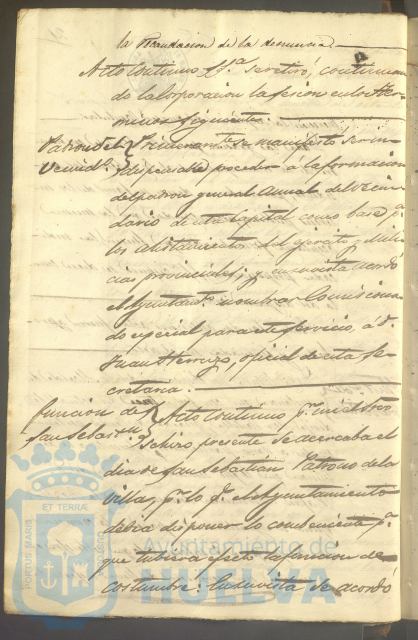 la Recaudacion de la
Acto continuo S.Sª se retiró, continuan
do la Corporacion la sesion en los ter
minos siguientes.
Padron del Primeramte se manifestó ser in
Vecindº dispensable proceder á la formacion
del padron general anual del vecin
dario de esta Capital como base pª
los alistamientos del ejercito y mili
cias provinciales; y en su vista acordó
el Ayuntamtº nombrar Comisiona
do especial para este servicio, á D.
Juan Herrezo, oficial de esta Se
cretaria.
funcion de Acto continuo pr mi el Srio
San Sebastn se hizo presente se acercaba el
dia de San Sebastian Patrono de la
Villa, pr lo qe el Ayuntamiento
debia disponer lo conbeniente pª
que tubiera efecto la funcion de
costumbre: En su vista se acordó
PORTUS MARIS
ET TERRÆ
CUSTODIA
Ayuntamiento de
HUELVA